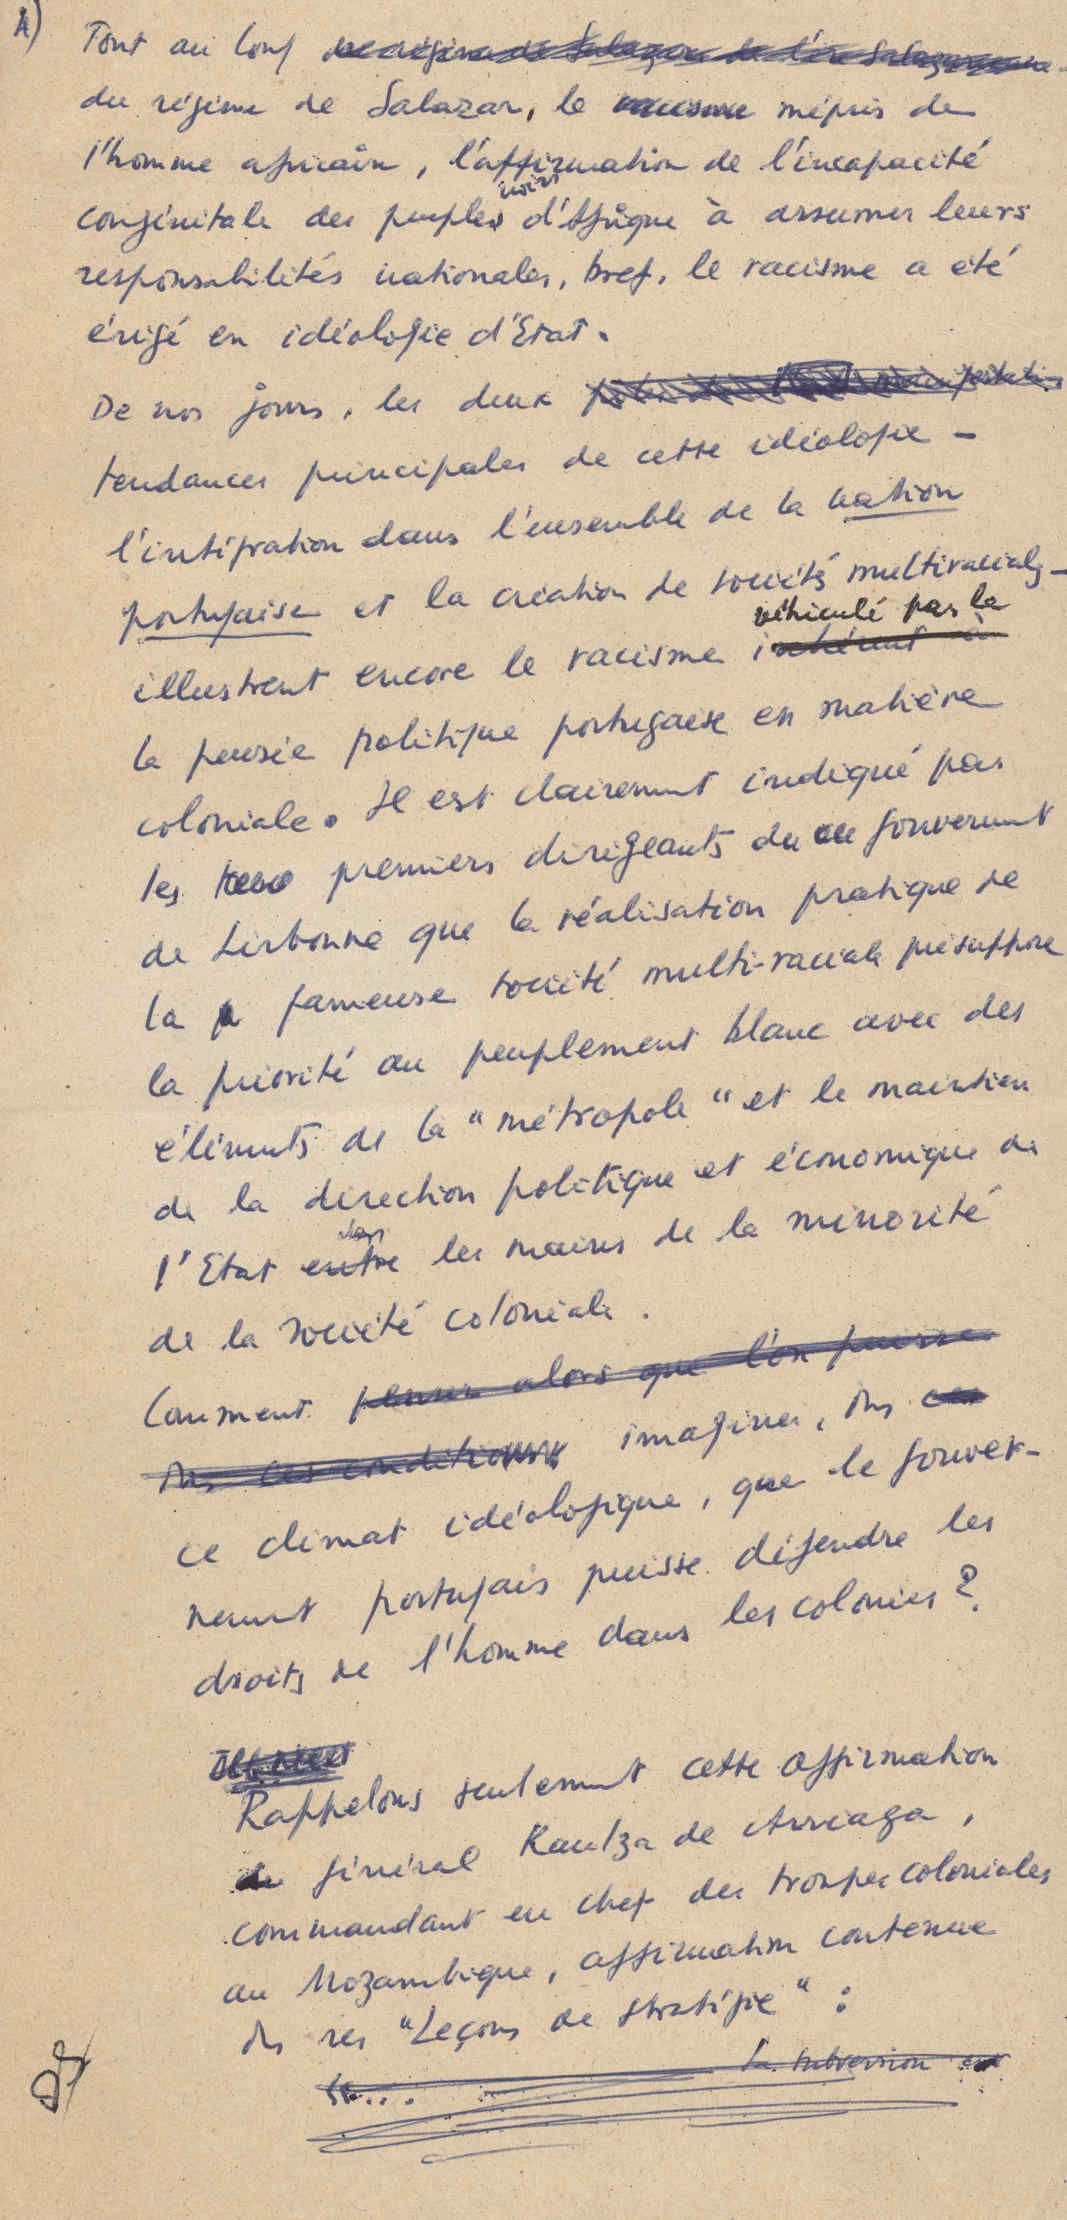 4) Tout au long de régime de Salazar de l'ère Salazarienne
du régime de Salazar, le racisme mépris de
l'homme africain, l'affirmation de l'incapacité
noirs
congénitale des peuples d'Afrique à assumer leurs
responsabilités nationales, bref, le racisme a été
érigé en idéologie d'Etat.
De nos jours, les deux manifestations
tendances principales de cette idéologie -
l'intégration dans l'ensemble de la nation
portugaise et la création de sociétés multiraciales -
véhiculé par la
illustrent encore le racisme inhérent à
la pensée politique portugaise en matière
coloniale. Il est clairement indiqué par
les premiers dirigeants du gouvernmt
de Lisbonne que la réalisation pratique de
la fameuse société multi-raciale présuppose
la priorité au peuplement blanc avec des
élémts de la "métropole" et le maintien
de la direction politique et économique de
dans
l'Etat entre les mains de la minorité
de la société coloniale.
Comment penser alors que l'on puisse
ds ces conditions imaginer, ds ces
ce climat idéologique, que le gouver-
nemnt portugais puisse défendre les
droits de l'homme dans les colonies?
Rappelons seulemnt cette affirmation
du général Kaulza de Arriaga,
commandant en chef des troupes coloniales
au Mozambique, affirmation contenue
ds ses "Leçons de stratégie" :
"... La subversion est